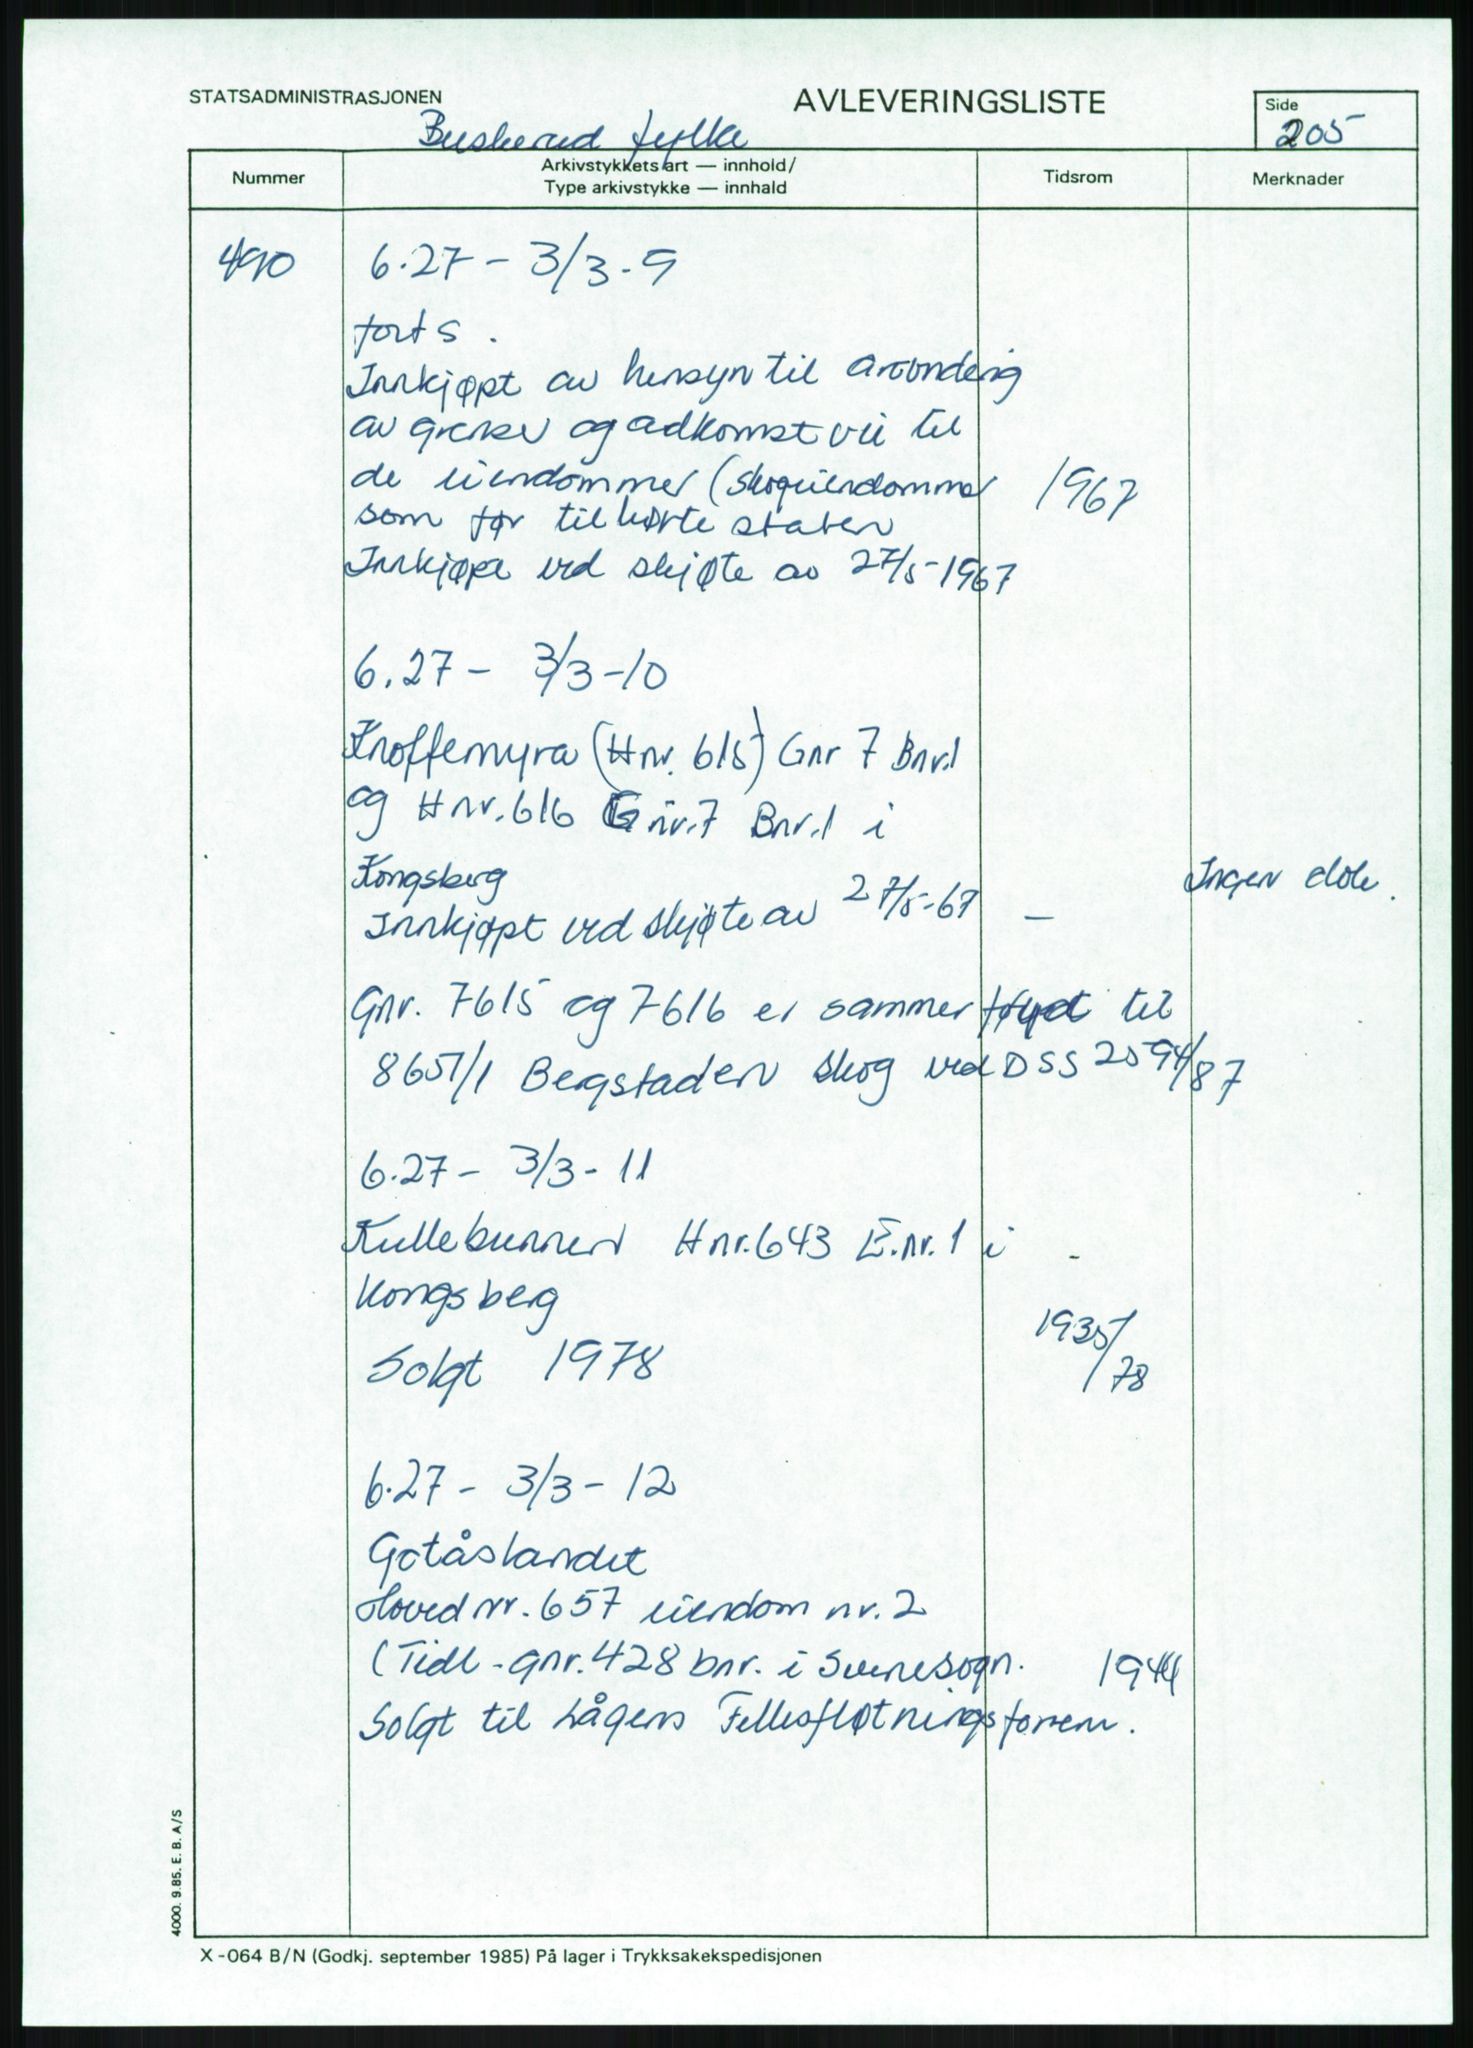 STATSADMINISTRASJONEN
AVLEVERINGSLISTE
Side
205
Buskerud fylke
Nummer
Arkivstykkets art — innhold/
Type arkivstykke — innhald
Tidsrom
Merknader
490
6.27 - 3/3-9
forts.
Innkjøpt av hensyn til avrunding
av grenser og adkomstvei til
de eiendommer (skogeiendommer 1967
som før tilhørte staten
Innkjøpt ved skjøte av 27/5-1967
6.27 - 3/3-10
Knoffemyra (Hnr. 615) Gnr 7 Bnr.1
og Hnr. 616 Gnr.7 Bnr.1 i
Kongsberg
Ingen dok.
Innkjøpt ved skjøte av 27/5-67 —
Gnr. 7615 og 7616 er sammenføyd til
8651/1 Bergstaden skog ved DSS 2594/87
6.27 - 3/3-11
Kullebunnen Hnr. 643 E.nr. 1 i -
Kongsberg
1935/78
Solgt 1978
6.27 - 3/3-12
Gotåslandet
Hovednr. 657 eiendom nr. 2
(Tidl. gnr. 428 bnr. i Svenesogn. 1944
Solgt til Lågens Fellesfløtningsforen.
4000. 9.85. E. B. A/S
X-064 B/N (Godkj. september 1985) På lager i Trykksakekspedisjonen